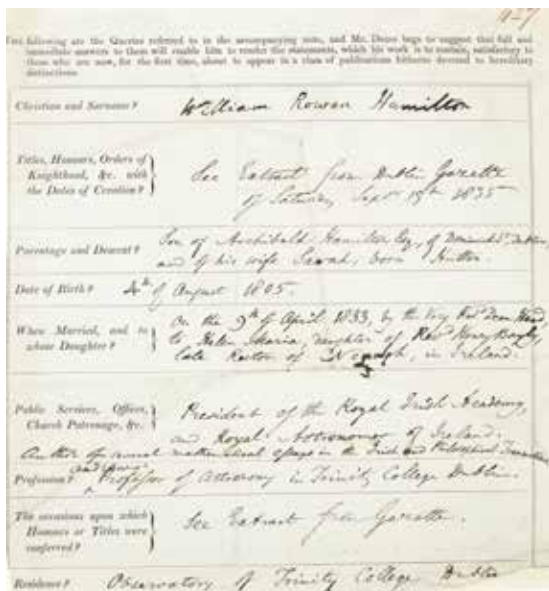 The following are the Queries referred to in the accompanying note, and Mr. begs to suggest that full and
immediate answers to them will enable him to render the statements, which his work is to contain, satisfactory to
those who are now, for the first time, about to appear in a class of publications hitherto devoted to hereditary
distinctions.
Christian and Surname?
Wm Rowan Hamilton
Titles, Honours, Orders of
Knighthood, &c. with
the Dates of Creation?
See Extract from Dublin Gazette
of Saturday Septr 1835
Parentage and Descent?
Son of Archibald Hamilton Esq, of Dominick St. Dublin
and of his wife Sarah, born Hutton.
Date of Birth?
4th of August 1805.
When Married, and to
whose Daughter?
On the 9th of April 1833, by the Very Revd Dean
to Helen Maria, daughter of Revd Henry Bayly,
late Rector of Nenagh, in Ireland.
Public Services, Offices,
Church Patronage, &c.
President of the Royal Irish Academy,
and Royal Astronomer of Ireland.
Author of several mathematical essays in the Irish and Philosophical Transactions
Profession?
Professor of Astronomy in Trinity College Dublin.
The occasions upon which
Honours or Titles were
conferred?
See Extract from Gazette.
Residence?
Observatory of Trinity College Dublin